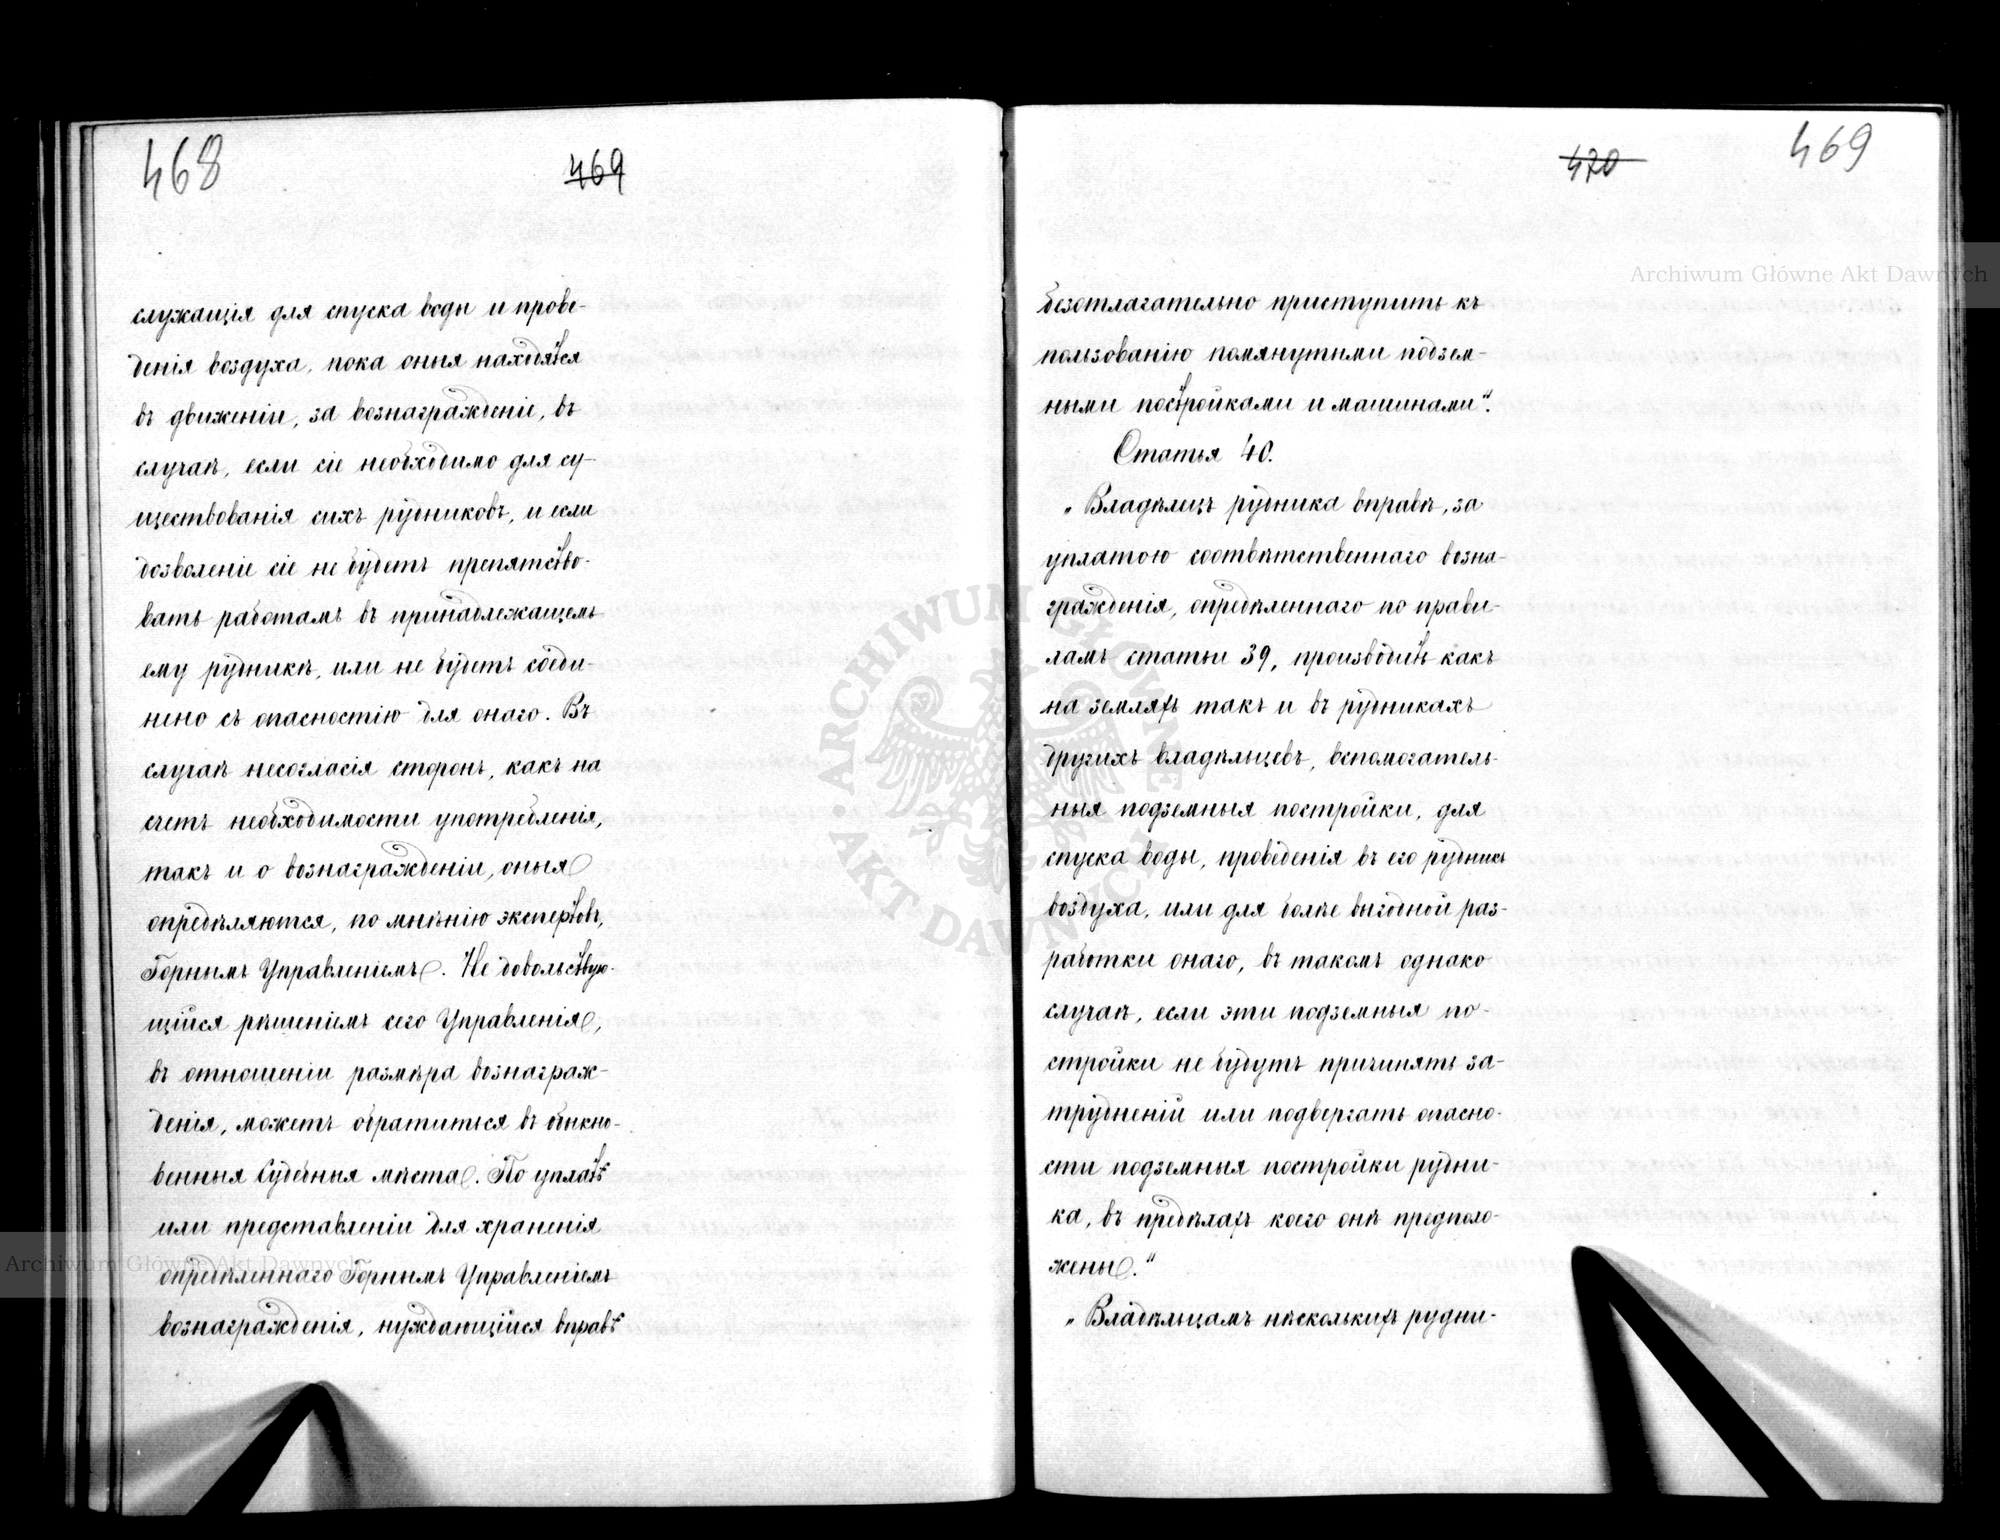 468
469
служащія для спуска воды и прове-
денія воздуха, пока оныя находятся
въ движеніи, за вознагражденіе, въ
случаѣ, если сіе необходимо для су-
ществованія сихъ рудниковъ, и если
дозволеніе сіе не будетъ препятство-
вать работамъ въ принадлежащемъ
ему рудникѣ, или не будетъ соеди-
нено съ опасностію для онаго. Въ
случаѣ несогласія сторонъ, какъ на
счетъ необходимости употребленія,
такъ и о вознагражденіи, оныя
опредѣляются, по мнѣнію экспертовъ,
Горнымъ Управленіемъ. Не довольствую-
щійся рѣшеніемъ сего Управленія,
въ отношеніи размѣра вознаграж-
денія, можетъ обратиться въ обыкно-
венныя Судебныя мѣста. По уплатѣ
или представленіи для храненія
опредѣленнаго Горнымъ Управленіемъ
вознагражденія, нуждающійся вправѣ
470
469
безотлагательно приступить къ
пользованію помянутыми подзем-
ными постройками и машинами".
Статья 40.
„Владѣлецъ рудника вправѣ, за
уплатою соотвѣтственнаго возна-
гражденія, опредѣленнаго по прави-
ламъ статьи 39, производить какъ
на земляхъ такъ и въ рудникахъ
другихъ владѣльцевъ, вспомогатель-
ныя подземныя постройки, для
спуска воды, проведенія въ его рудникъ
воздуха, или для болѣе выгодной раз-
работки онаго, въ такомъ однако
случаѣ, если эти подземныя по-
стройки не будутъ причинять за-
трудненій или подвергать опасно-
сти подземныя постройки рудни-
ка, въ предѣлахъ коего онѣ предполо-
жены."
„Владѣльцамъ нѣсколькихъ рудни-
Archiwum Główne Akt Dawnych
Archiwum Główne Akt Dawnych
ARCHIWUM GŁÓWNE AKT DAWNYCH